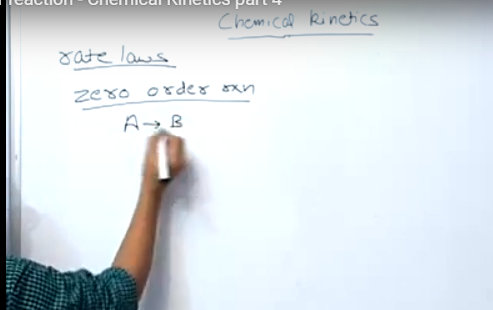 reaction - Chemical Kinetics part 4
Chemical Kinetics
rate laws
zero order rxn
A → B